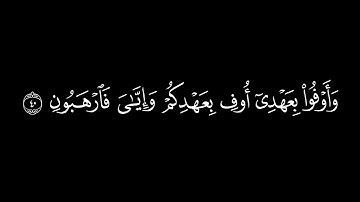 وَأَوۡفُواْ بِعَهۡدِيٓ أُوفِ بِعَهۡدِكُمۡ وَإِيَّٰيَ فَٱرۡهَبُونِ ٤٠